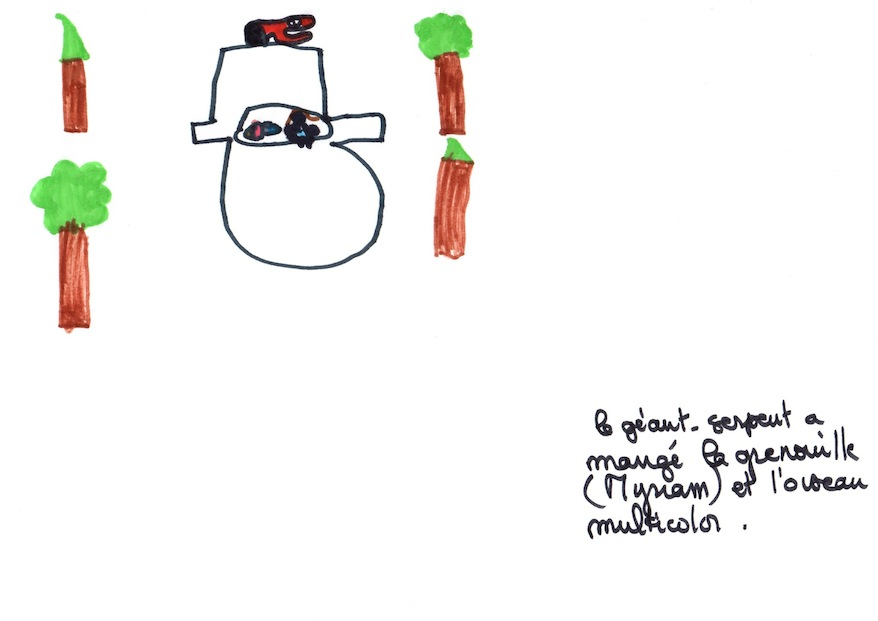 le géant-serpent a
mangé la grenouille
(Myriam) et l'oiseau
multicolor.